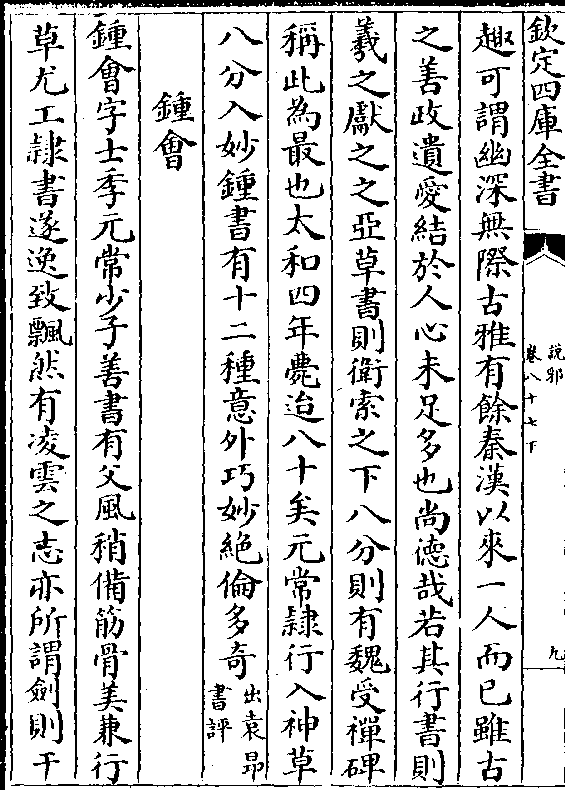 欽定四庫全書
說郛
卷八十七下
九
趣可謂幽深無際古雅有餘秦漢以來一人而已雖古
之善政遺愛結於人心未足多也尚德哉若其行書則
羲之獻之之亞草書則衛索之下八分則有魏受禪碑
稱此為最也太和四年薨迨八十矣元常隸行入神草
八分入妙鍾書有十二種意外巧妙絶倫多奇出袁昂書評
鍾會
鍾會字士季元常少子善書有父風稍備筋骨美兼行
草尤工隸書遂逸致飄然有凌雲之志亦所謂劍則干